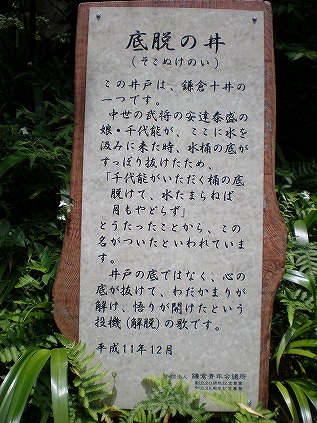 底脱の井
(そこぬけのい)
この井戸は、鎌倉十井の
一つです。
中世の武将の安達泰盛の
娘・千代能が、ここに水を
汲みに来た時、水桶の底が
すっぽり抜けたため、
「千代能がいただく桶の底
脱けて、水たまらねば
月もやどらず」
とうたったことから、この
名がついたといわれていま
す。
井戸の底ではなく、心の
底が抜けて、わだかまりが
解け、悟りが開けたという
投機(解脱)の歌です。
平成11年12月
鎌倉青年会議所